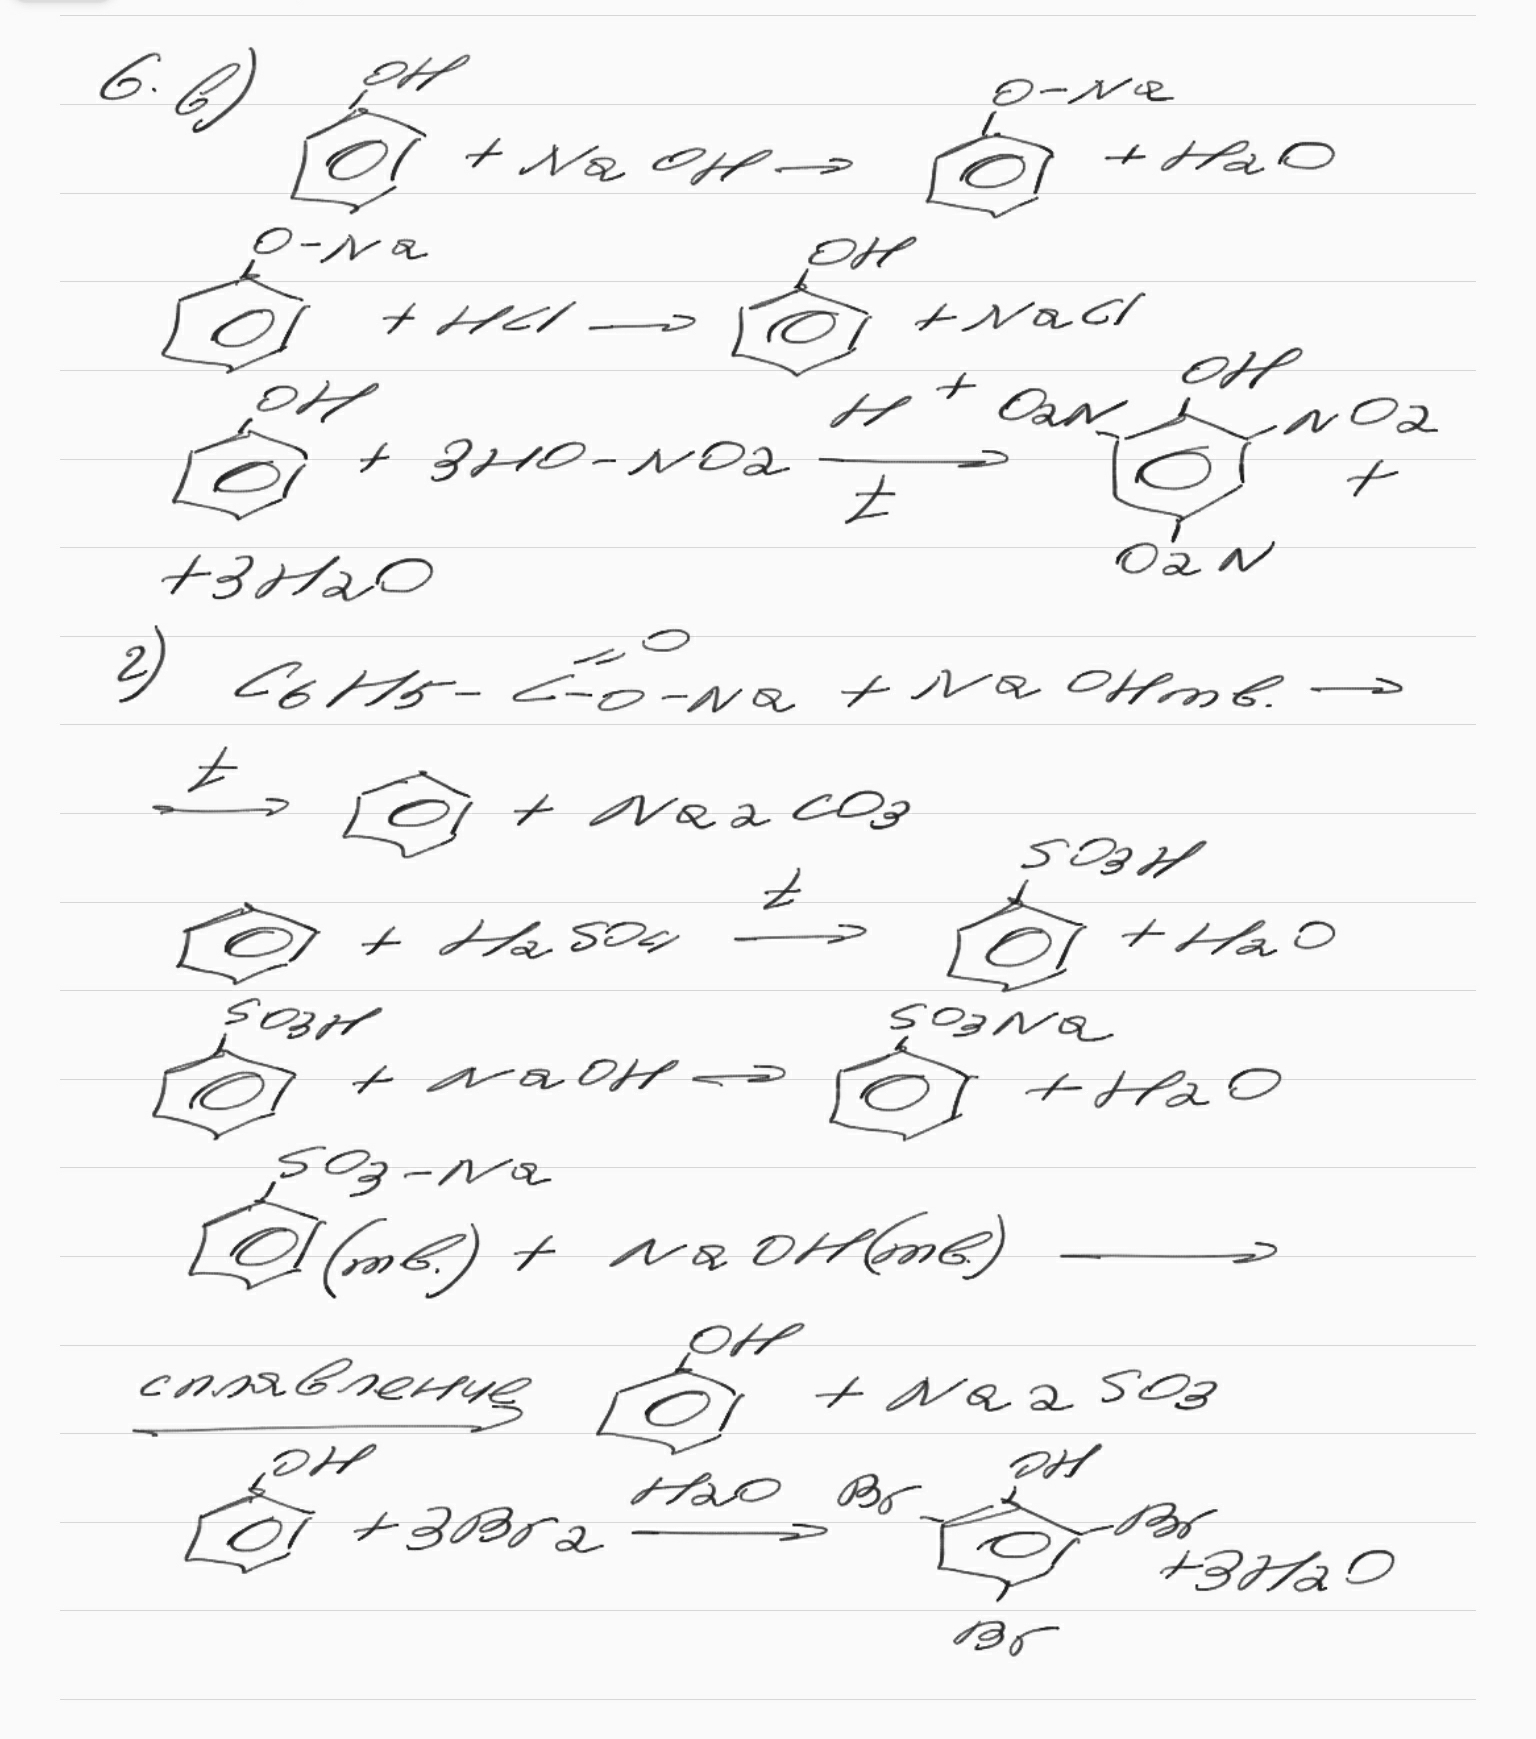 6. в) OH + NaOH → O-Na + H2O
O-Na + HCl → OH + NaCl
OH + 3HO-NO2 H+ t → O2N OH NO2 O2N +
+3H2O
г) C6H5-C=O-O-Na + NaOH тв. →
t → + Na2CO3
+ H2SO4 t → SO3H + H2O
SO3H + NaOH → SO3Na + H2O
SO3-Na (тв.) + NaOH (тв.) →
сплавление → OH + Na2SO3
OH + 3Br2 H2O → Br OH Br Br +3H2O